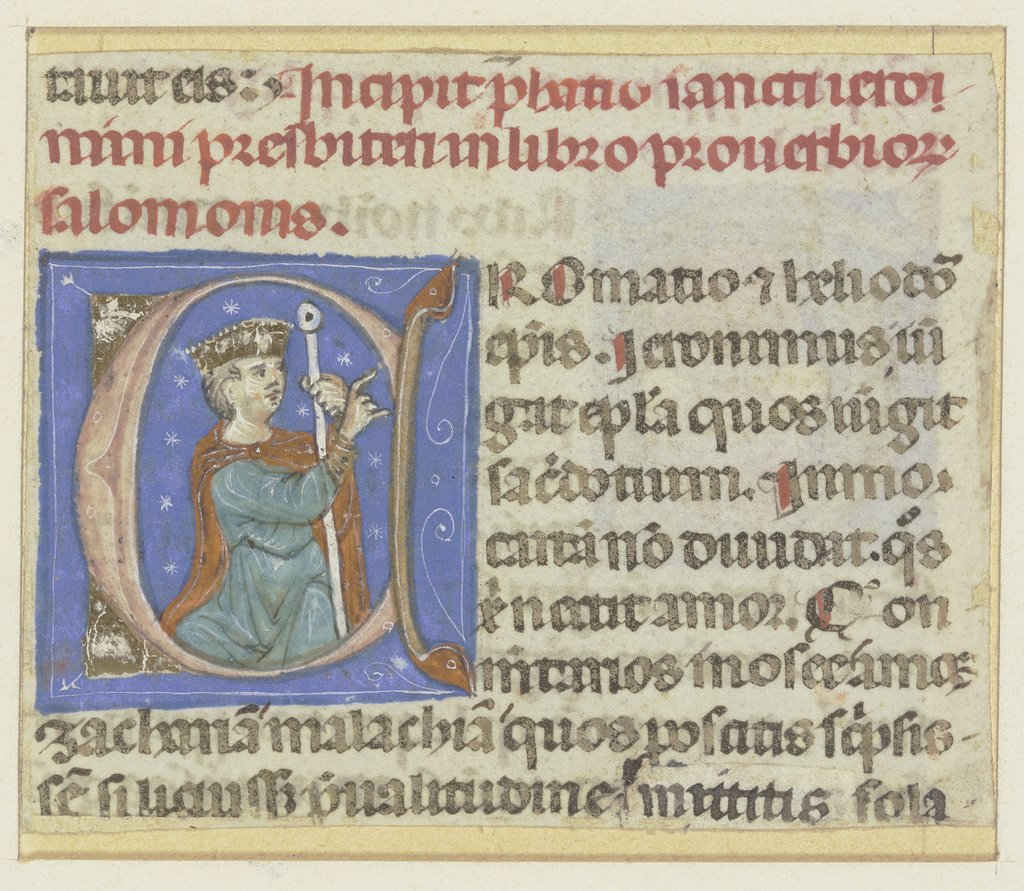 Incipit p̄hatio sancti ieroni
mini presbiteri in libro prouerbior
salomonis.
C RO matio ⁊ heliodoꝝ̄
ep̄is. Ieronimus iū
gat ep̄la quos iūgit
sac̄dotium. Immo
carta nō diuidit. q̄s
xp̄i nectit amor. Con
mtarios in osee amos
zachariā malachiā quos poscitis sc̄psis
sē si licuiss; p̄ ualitudine mittitis sola